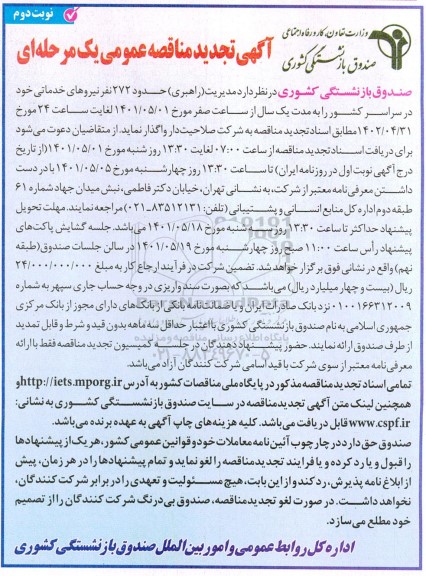 نوبت دوم
وزارت تعاون، کار و رفاه اجتماعی
صندوق بازنشستگی کشوری
آگهی تجدید مناقصه عمومی یک مرحله‌ای
صندوق بازنشستگی کشوری در نظر دارد مدیریت (راهبری) حدود ۲۷۲ نفر نیروهای خدماتی خود
در سراسر کشور را به مدت یک سال از ساعت صفر مورخ ۱۴۰۱/۰۵/۰۱ لغایت ساعت ۲۴ مورخ
۱۴۰۲/۰۴/۳۱ مطابق اسناد تجدید مناقصه به شرکت صلاحیت‌دار واگذار نماید. از متقاضیان دعوت می‌شود
برای دریافت اسناد تجدید مناقصه از ساعت ۰۷:۰۰ لغایت ۱۳:۳۰ روز شنبه مورخ ۱۴۰۱/۰۵/۰۱ (از تاریخ
درج آگهی نوبت اول در روزنامه ایران) تا ساعت ۱۳:۳۰ روز چهارشنبه مورخ ۱۴۰۱/۰۵/۰۵ با در دست
داشتن معرفی‌نامه معتبر از شرکت، به نشانی تهران، خیابان دکتر فاطمی، نبش میدان جهاد شماره ۶۱
طبقه دوم اداره کل منابع انسانی و پشتیبانی (تلفن: ۸۳۵۱۲۱۳۱-۰۲۱) مراجعه نمایند. مهلت تحویل
پیشنهاد حداکثر تا ساعت ۱۳:۳۰ روز سه‌شنبه مورخ ۱۴۰۱/۰۵/۱۸ می‌باشد. جلسه گشایش پاکت‌های
پیشنهاد رأس ساعت ۱۱:۰۰ صبح روز چهارشنبه مورخ ۱۴۰۱/۰۵/۱۹ در سالن جلسات صندوق (طبقه
نهم) واقع در نشانی فوق برگزار خواهد شد. تضمین شرکت در فرآیند ارجاع کار به مبلغ ۲۴/۰۰۰/۰۰۰/۰۰۰
ریال (بیست و چهار میلیارد ریال) می‌باشد که بصورت سند واریزی در وجه حساب جاری سپهر به شماره
۰۱۰۰۱۶۶۳۱۲۰۰۹ نزد بانک صادرات ایران و یا ضمانت‌نامه بانکی از بانک‌های دارای مجوز از بانک مرکزی
جمهوری اسلامی به نام صندوق بازنشستگی کشوری با اعتبار حداقل سه ماهه بدون قید و شرط و قابل تمدید
از طرف صندوق ارائه نمایند. حضور پیشنهاددهندگان در جلسه کمیسیون تجدید مناقصه فقط با ارائه
معرفی‌نامه معتبر از سوی شرکت با قید اسامی شرکت کنندگان آزاد می‌باشد.
تمامی اسناد تجدید مناقصه مذکور در پایگاه ملی مناقصات کشور به آدرس http://iets.mporg.ir و
همچنین لینک متن آگهی تجدید مناقصه در سایت صندوق بازنشستگی کشوری به نشانی:
www.cspf.ir قابل دریافت می‌باشد. کلیه هزینه‌های چاپ آگهی به عهده برنده می‌باشد.
صندوق حق دارد در چارچوب آئین‌نامه معاملات خود و قوانین عمومی کشور، هر یک از پیشنهادها
را قبول و یا رد کرده و یا فرایند تجدید مناقصه را لغو نماید و تمام پیشنهادها را در هر زمان، پیش
از ابلاغ نامه پذیرش، رد کند و از این بابت، هیچ مسئولیت و تعهدی را در برابر شرکت کنندگان،
نخواهد داشت. در صورت لغو تجدید مناقصه، صندوق بی‌درنگ شرکت کنندگان را از تصمیم
خود مطلع می‌سازد.
اداره کل روابط عمومی و امور بین الملل صندوق بازنشستگی کشوری